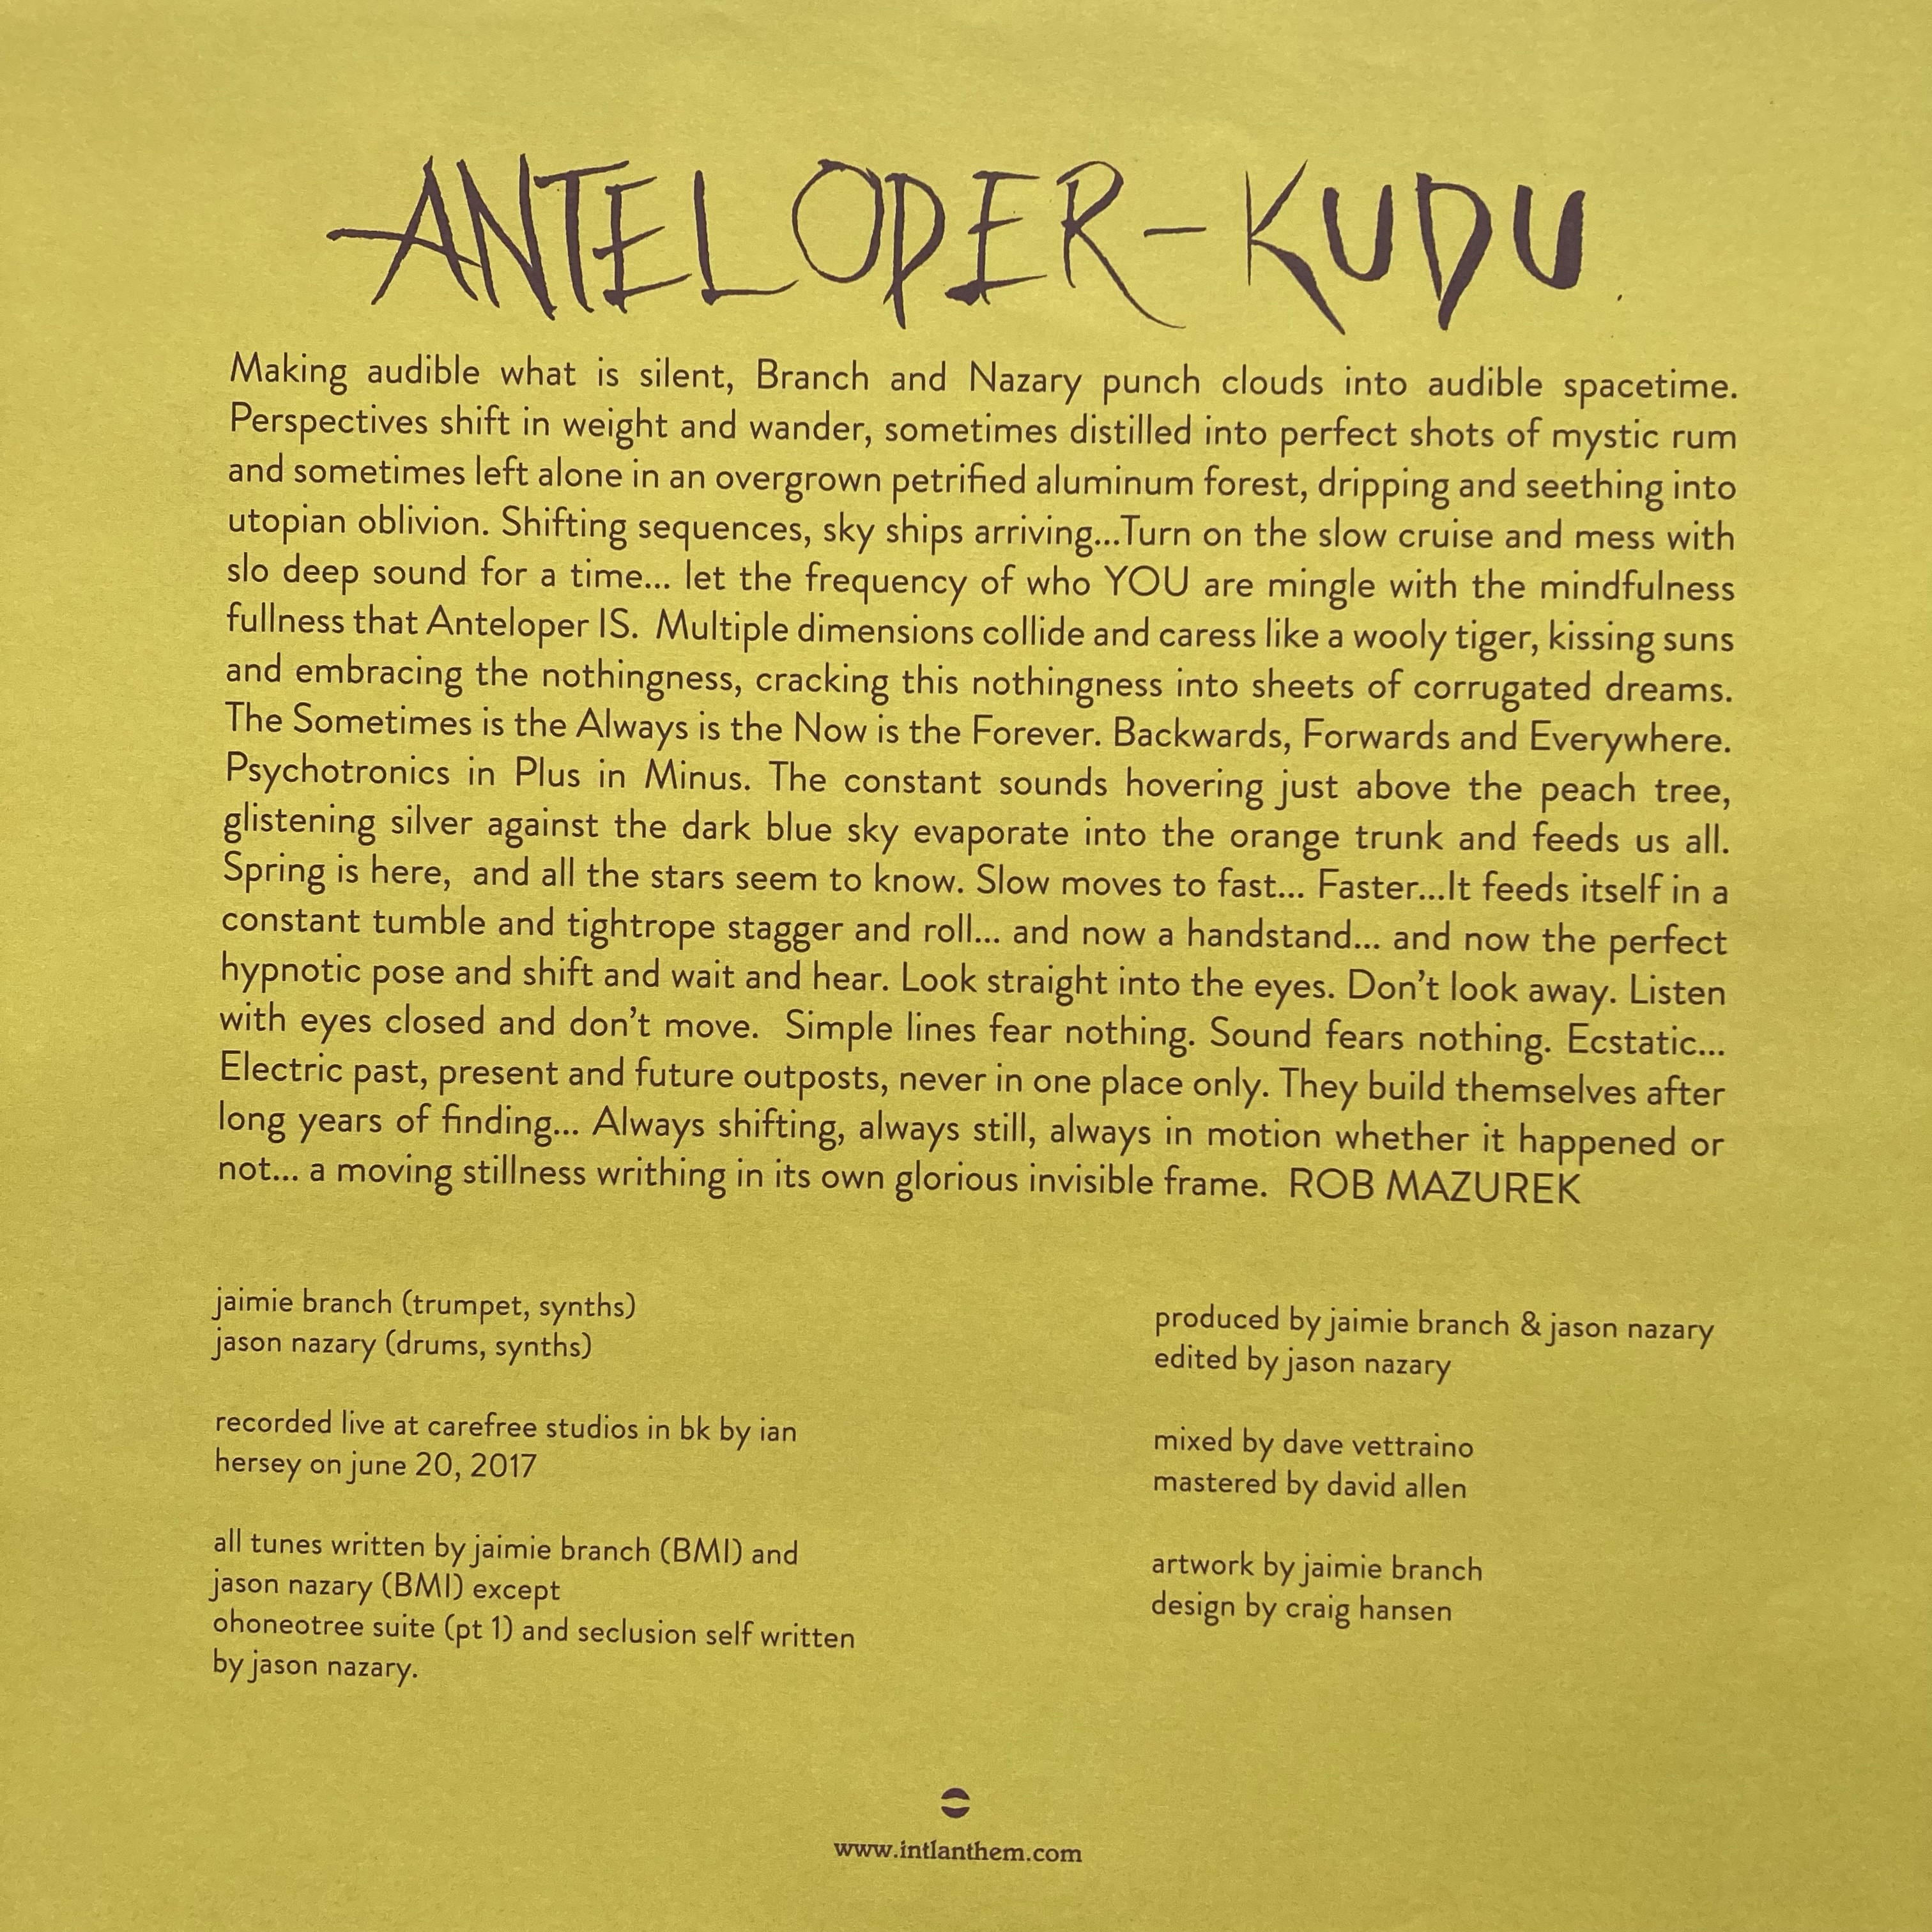 ANTELOPER - KUDU
Making audible what is silent, Branch and Nazary punch clouds into audible spacetime.
Perspectives shift in weight and wander, sometimes distilled into perfect shots of mystic rum
and sometimes left alone in an overgrown petrified aluminum forest, dripping and seething into
utopian oblivion. Shifting sequences, sky ships arriving...Turn on the slow cruise and mess with
slo deep sound for a time... let the frequency of who YOU are mingle with the mindfulness
fullness that Anteloper IS. Multiple dimensions collide and caress like a wooly tiger, kissing suns
and embracing the nothingness, cracking this nothingness into sheets of corrugated dreams.
The Sometimes is the Always is the Now is the Forever. Backwards, Forwards and Everywhere.
Psychotronics in Plus in Minus. The constant sounds hovering just above the peach tree,
glistening silver against the dark blue sky evaporate into the orange trunk and feeds us all.
Spring is here, and all the stars seem to know. Slow moves to fast... Faster...It feeds itself in a
constant tumble and tightrope stagger and roll... and now a handstand... and now the perfect
hypnotic pose and shift and wait and hear. Look straight into the eyes. Don't look away. Listen
with eyes closed and don't move. Simple lines fear nothing. Sound fears nothing. Ecstatic...
Electric past, present and future outposts, never in one place only. They build themselves after
long years of finding... Always shifting, always still, always in motion whether it happened or
not... a moving stillness writhing in its own glorious invisible frame. ROB MAZUREK
jaimie branch (trumpet, synths)
jason nazary (drums, synths)
recorded live at carefree studios in bk by ian
hersey on june 20, 2017
all tunes written by jaimie branch (BMI) and
jason nazary (BMI) except
ohoneotree suite (pt 1) and seclusion self written
by jason nazary.
produced by jaimie branch & jason nazary
edited by jason nazary
mixed by dave vettraino
mastered by david allen
artwork by jaimie branch
design by craig hansen
www.intlanthem.com